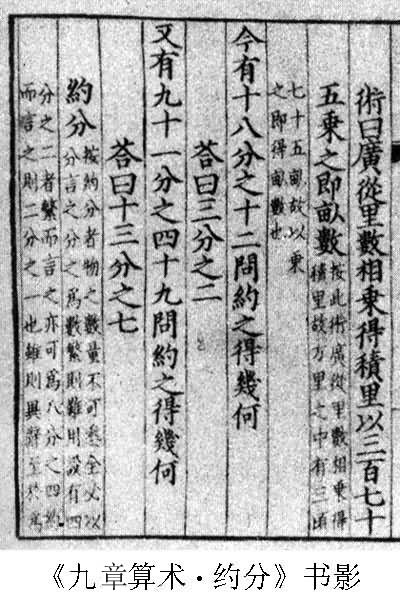 術曰廣從里數相乘得積里以三百七十
五乘之即畝數按此術廣從里數相乘得
積里故方里之中有三頃
七十五畝故以乘
之即得畝數也
今有十八分之十二問約之得幾何
荅曰三分之二
又有九十一分之四十九問約之得幾何
荅曰十三分之七
約分按約分者物之數量不可悉全必以
分言之分之為數繁則難用設有四
分之二者繁而言之亦可為八分之四約
而言之則二分之一也雖則異辭至於為
《九章算术·约分》书影